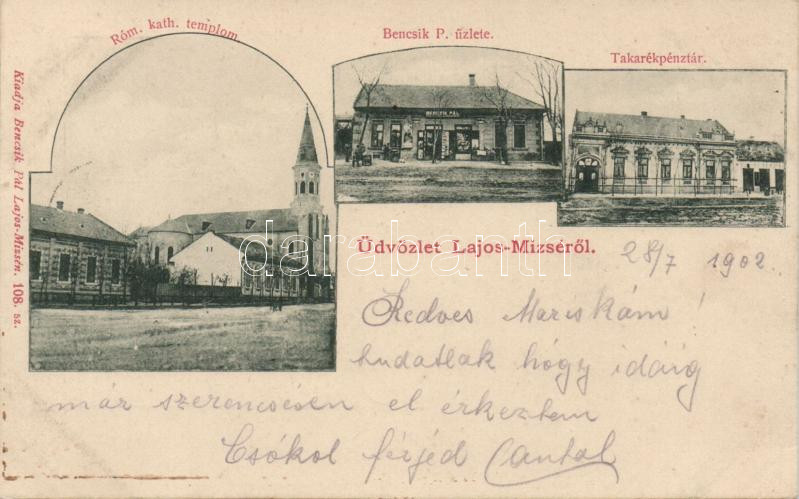 Róm. kath. templom
Bencsik P. űzlete.
Takarékpénztár.
BENCSIK PÁL
Kiadja Bencsik Pál Lajos-Mizsén. 108. sz.
darabanth©
Üdvözlet Lajos-Mizséről.
28/7 1902
Kedves Mariskám!
tudatlak hógy idáig
már szerencsésen el érkeztem
Csókol férjed Antal